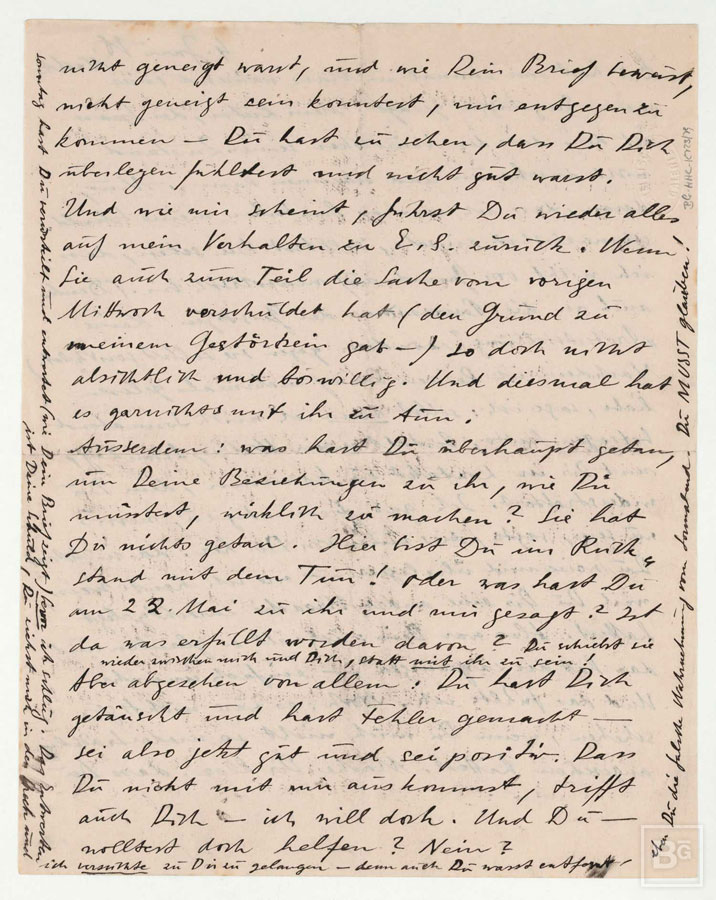 nicht geneigt warst, und wie Dein Brief beweist,
nicht geneigt sein konntest, mir entgegen zu
kommen — Du hast zu sehen, dass Du Dich
überlegen fühltest und nicht gut warst.
Und wie mir scheint, führst Du wieder alles
auf mein Verhalten zu E. S. zurück. Wenn
Sie auch zum Teil die Sache vom vorigen
Mittwoch verschuldet hat (den Grund zu
meinem Gestörtsein gab —) so doch nicht
absichtlich und böswillig. Und diesmal hat
es garnichts mit ihr zu tun.
Ausserdem: was hast Du überhaupt getan,
um Deine Beziehungen zu ihr, wie Du
müsstest, wirklich zu machen? Sie hat
Dir nichts getan. Hier bist Du im Rück-
stand mit dem Tun! Oder was hast Du
am 22. Mai zu ihr und mir gesagt? Ist
da was erfüllt worden davon? Du schiebst sie
wieder zwischen mich und Dich, statt mit ihr zu sein!
Aber abgesehen von allem: Du hast Dich
getäuscht und hast Fehler gemacht —
sei also jetzt gut und sei positiv. Dass
Du nicht mit mir auskommst, trifft
auch Dich — ich will doch. Und Du —
wolltest doch helfen? Nein?
ich versuchte zu Dir zu gelangen — denn auch Du warst entfernt,
Du die falsche Wahrnehmung vom Sonnabend. Du MUSST glauben!
Sonntag hast Du verurteilt und entwertet (wie Dein Brief zeigt) wenn ich schlug: Das
ist Deine Schuld, Du ziehst mich in den und
BG-HHC-K 723/79
BG